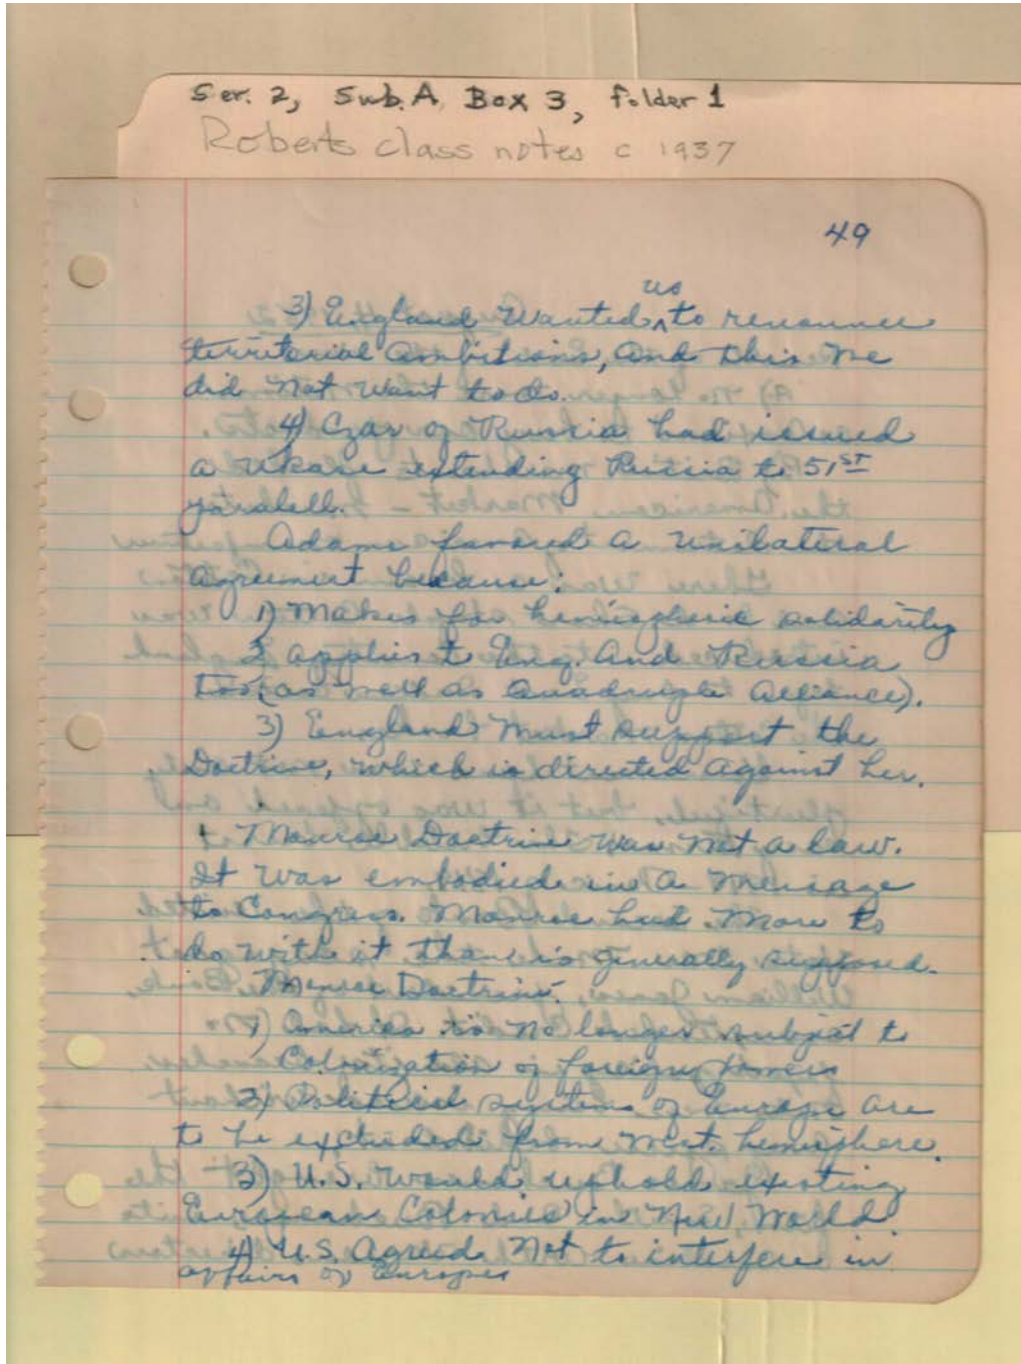 Ser. 2, Sub. A, Box 3, folder 1
Roberts class notes c 1937
49
us
3) England Wanted ^ to renounce
territorial ambitions, and this we
did not want to do.
4) Czar of Russia had issued
a ukase extending Russia to 51ST
parallell.
Adams favored a unilateral
agreement because:
1) Makes for hemispheric solidarity
2 applies to Eng. And Russia
too (as well as Quadruple Alliance).
3) England Must support the
Doctrine, which is directed against her.
Monroe Doctrine was not a law.
It was embodied in a message
to Congress. Monroe had More to
do with it than is generally supposed.
Monroe Doctrine.
1) America is no longer subject to
Colonization of foreign powers
2) Political systems of Europe are
to be excluded from West. hemisphere.
3) U.S. would uphold existing
European Colonies in New World.
4) U.S. Agreed Not to interfere in
affairs of Europe